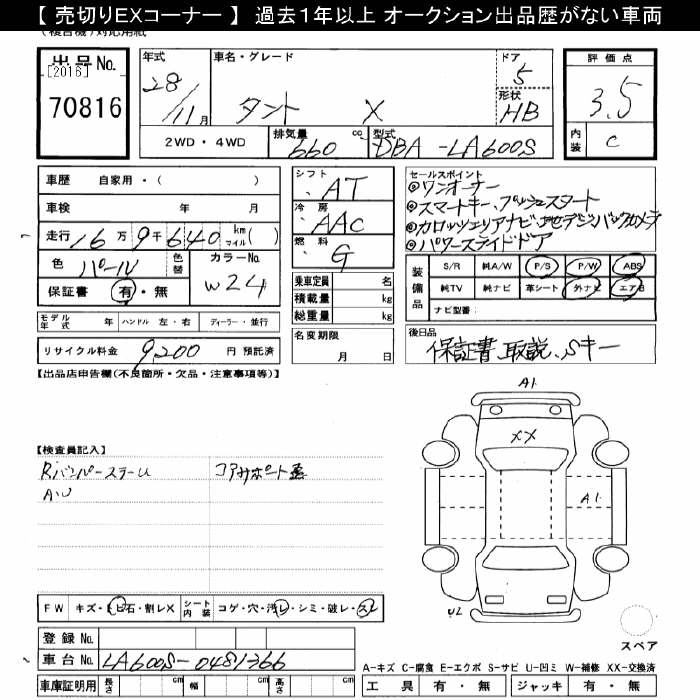 【 売切りEXコーナー 】 過去１年以上 オークション出品歴がない車両
(複合機)対応用紙
出品No.
[2016]
70816
年式
28/11月
車名・グレード
タント X
ドア
5
形状
HB
2WD・4WD
排気量
660 cc
型式
DBA-LA600S
評価点
3.5
内装
C
車歴 自家用・( )
車検 年 月
走行 16万9千640 km マイル( )
色 パール
色替
カラーNo
W24
保証書 有・無
シフト
AT
冷房
AAC
燃料
G
乗車定員 名
積載量 kg
総重量 kg
セールスポイント
◎ワンオーナー
◎スマートキー、プッシュスタート
◎カロッツェリアナビ
◎パワースライドドア
装備品
S/R 純A/W P/S P/W ABS
純TV 純ナビ 革シート 外ナビ エアB
ナビ型番:
モデル年式 年 ハンドル 左・右 ディーラー・並行
リサイクル料金 9,200 円 預託済
名変期限
月 日
後日品
保証書、取説、Sキー
【出品店申告欄(不良箇所・欠品・注意事項等)】
【検査員記入】
RバンパーステーU
AU
コアサポート歪
A1
XX
A1
UL
スペア
FW キズ・ヒビ石・割レX
シート内装 コゲ・穴・汚レ・シミ・破レ・スレ
登録 No.
車台 No. LA600S-0481366
車庫証明用 長さ cm 幅 cm 高さ cm
A-キズ C-腐食 E-エクボ S-サビ U-凹ミ W-補修 XX-交換済
工具 有・無 ジャッキ 有・無